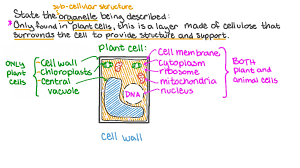 sub-cellular structure
State the organelle being described:
"Only found in plant cells, this is a layer made of cellulose that
surrounds the cell to provide structure and support.
plant cell:
ONLY plant cells
Cell wall
Chloroplasts
Central vacuole
Cell membrane
cytoplasm
ribosome
mitochondria
nucleus
BOTH plant and animal cells
DNA
cell wall